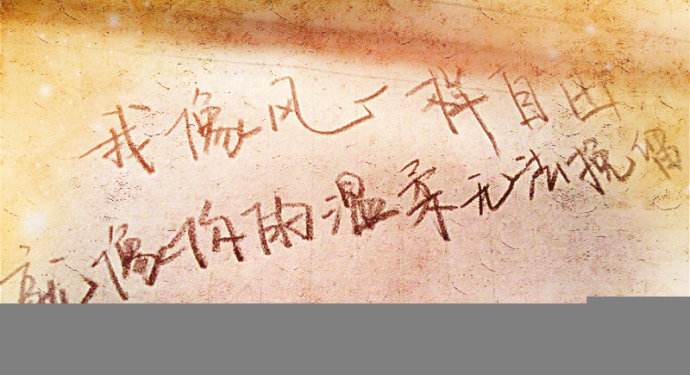 我像风一样自由
就像你的温柔无法挽留